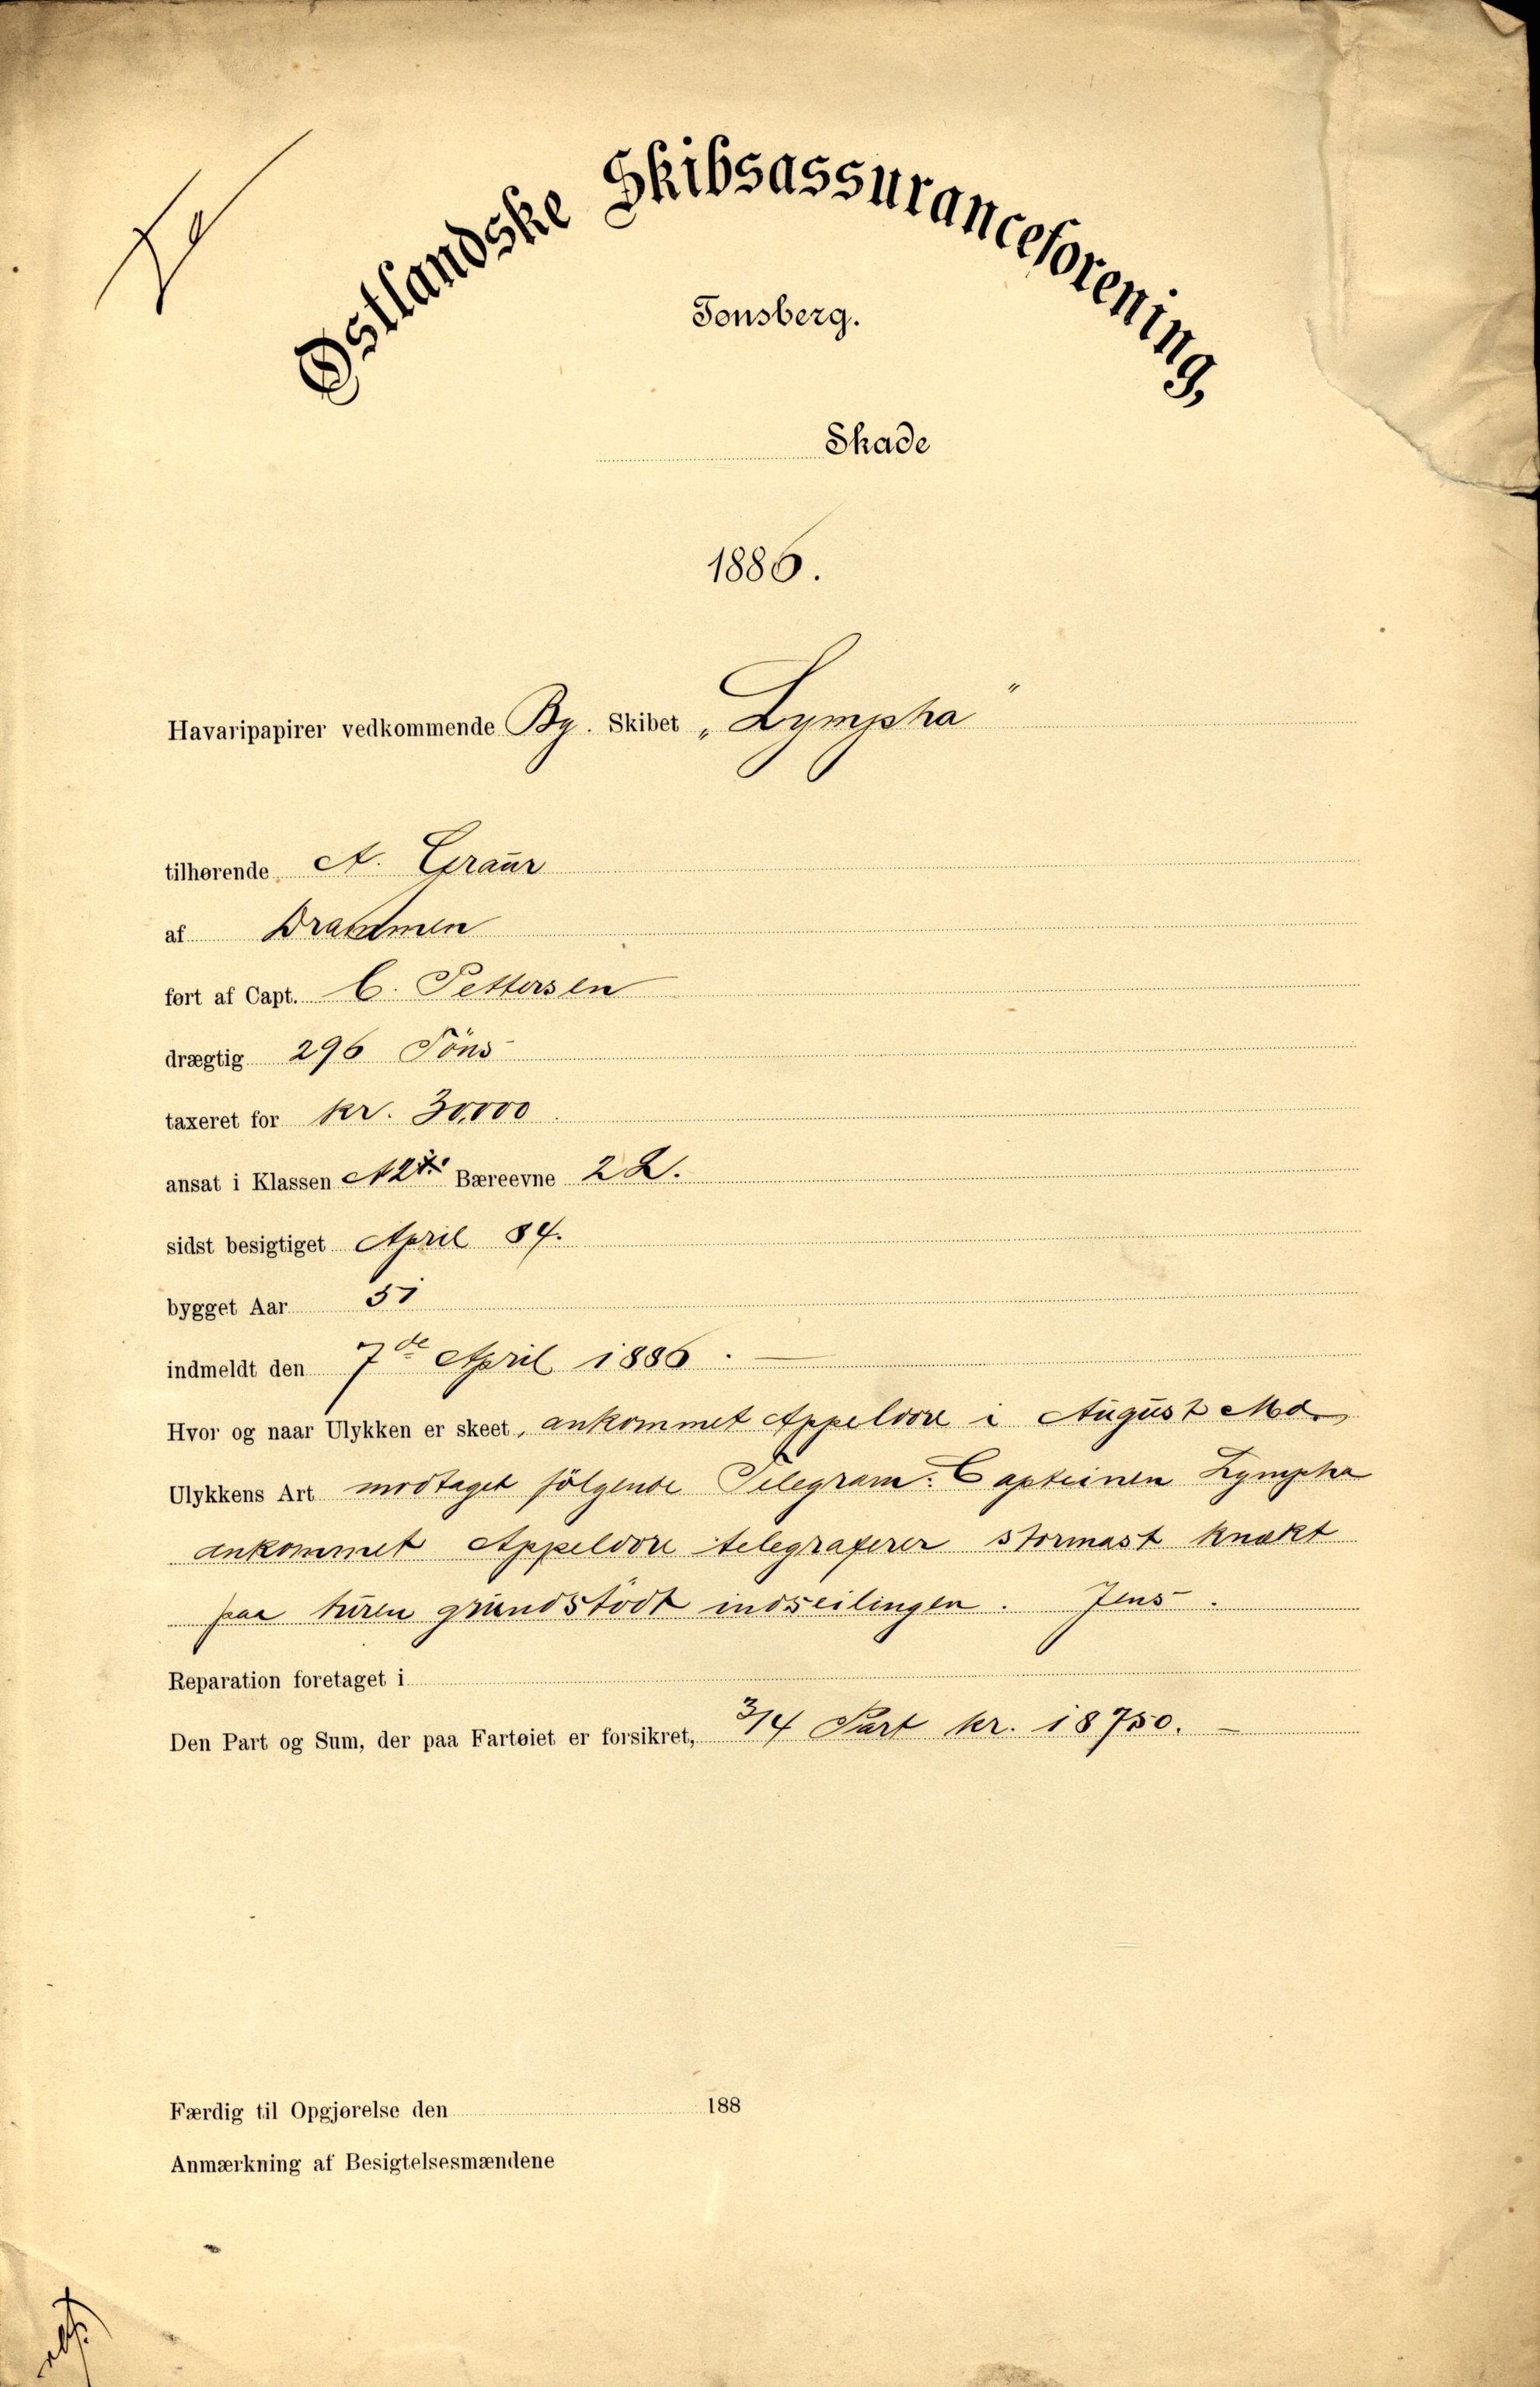 Østlandske Skibsassuranceforening,
Tønsberg.
Skade
1886.
Havaripapirer vedkommende Bg. Skibet „Lympha"
tilhørende A. Graur
af Drammen
ført af Capt. C. Pettersen
drægtig 296 Tons
taxeret for kr. 30,000
ansat i Klassen A2 Bæreevne 2 L.
sidst besigtiget April 84.
bygget Aar 51
indmeldt den 7de April 1886.
Hvor og naar Ulykken er skeet, ankommet Appeldore i August Md.
Ulykkens Art modtaget følgende Telegram: Capteinen Lympha
ankommet Appeldore telegraferer stormast knækt
paa turen grundstødt indseilingen. Jens.
Reparation foretaget i
Den Part og Sum, der paa Fartøiet er forsikret, 3/4 Part kr. 18750.
Færdig til Opgjørelse den 188
Anmærkning af Besigtelsesmændene